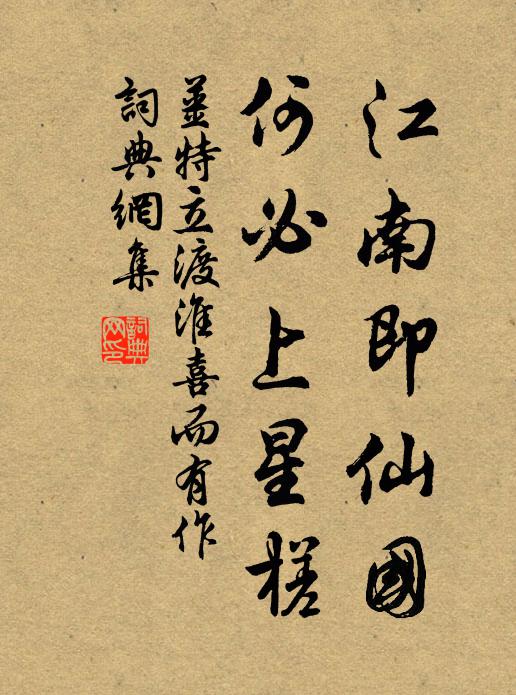 江南即仙國
何必上星槎
姜特立渡淮喜而有作
詞典網集
詞典網印